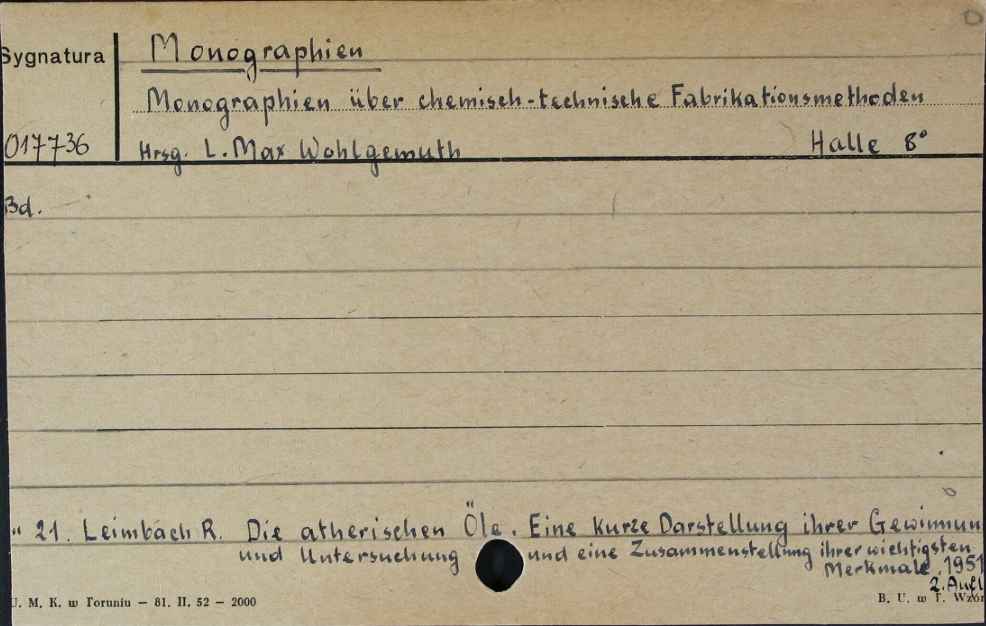 Sygnatura
Monographien
Monographien über chemisch-technische Fabrikationsmethoden
017736
Hrsg. L. Max Wohlgemuth Halle 8°
Bd.
" 21. Leimbach R. Die atherischen Öle. Eine kurze Darstellung ihrer Gewinnun
und Untersuchung und eine Zusammenstellung ihrer wichtigsten
Merkmale. 1951
2. Aufl
U. M. K. w Toruniu — 81. II. 52 — 2000
B. U. w T. Wzór